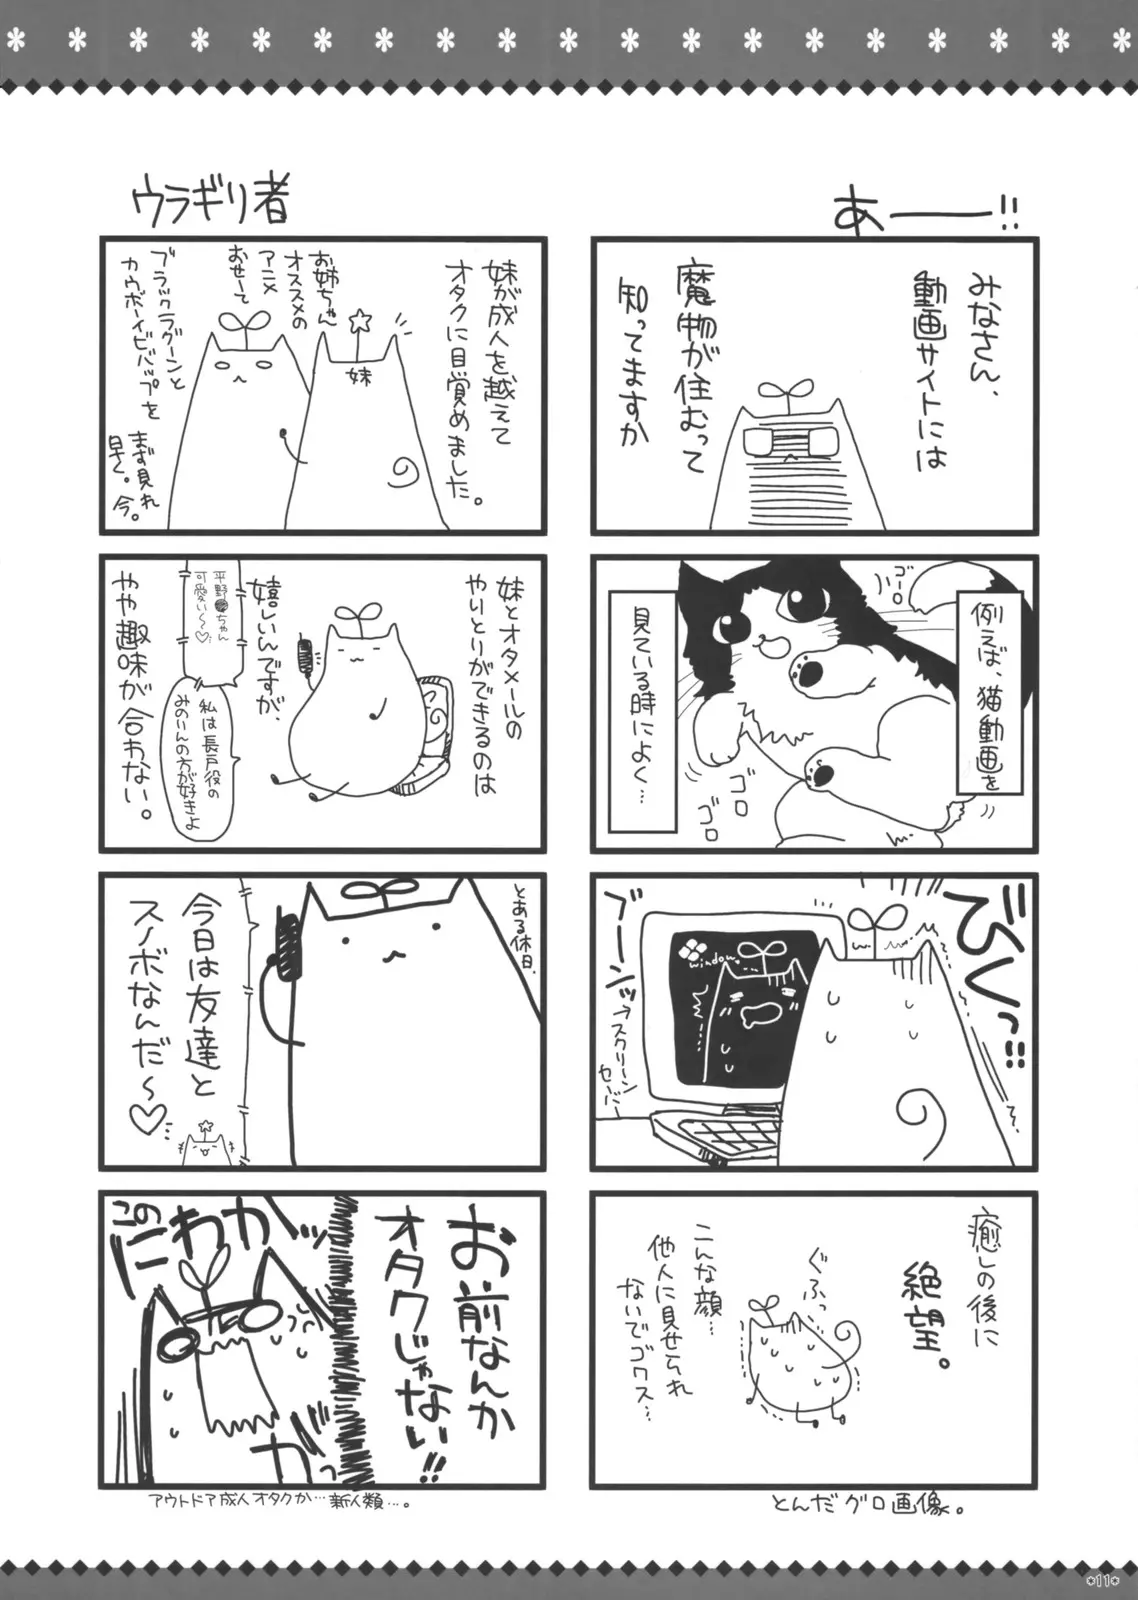 あーーー!!
みなさん、
動画サイトには
魔物が住むって
知ってますか
例えば、猫動画を
ゴーロ
ゴロ
ゴロ
見ている時によく…
びくっ!!!
window。
ブーンッ
→スクリーン
セーバー
癒しの後に
絶望。
ぐふっ
こんな顔…
他人に見せられ
ないでゴワス…
とんだグロ画像。
ウラギリ者
妹が成人を越えて
オタクに目覚めました。
お姉ちゃん
オススメの
アニメ
おせーて
妹
ブラックラグーンと
カウボーイビバップを
まず見れ
早く。今。
妹とオタメールの
やりとりができるのは
嬉しいんですが、
平野●ちゃん
可愛い〜♡
私は長戸役の
みのりんの方が好きよ
やや趣味が合わない。
とある休日、
今日は友達と
スノボなんだ〜♡
お前なんか
オタクじゃない!!
この
にわかッ
カッ
アウトドア成人オタクか…新人類…。
11